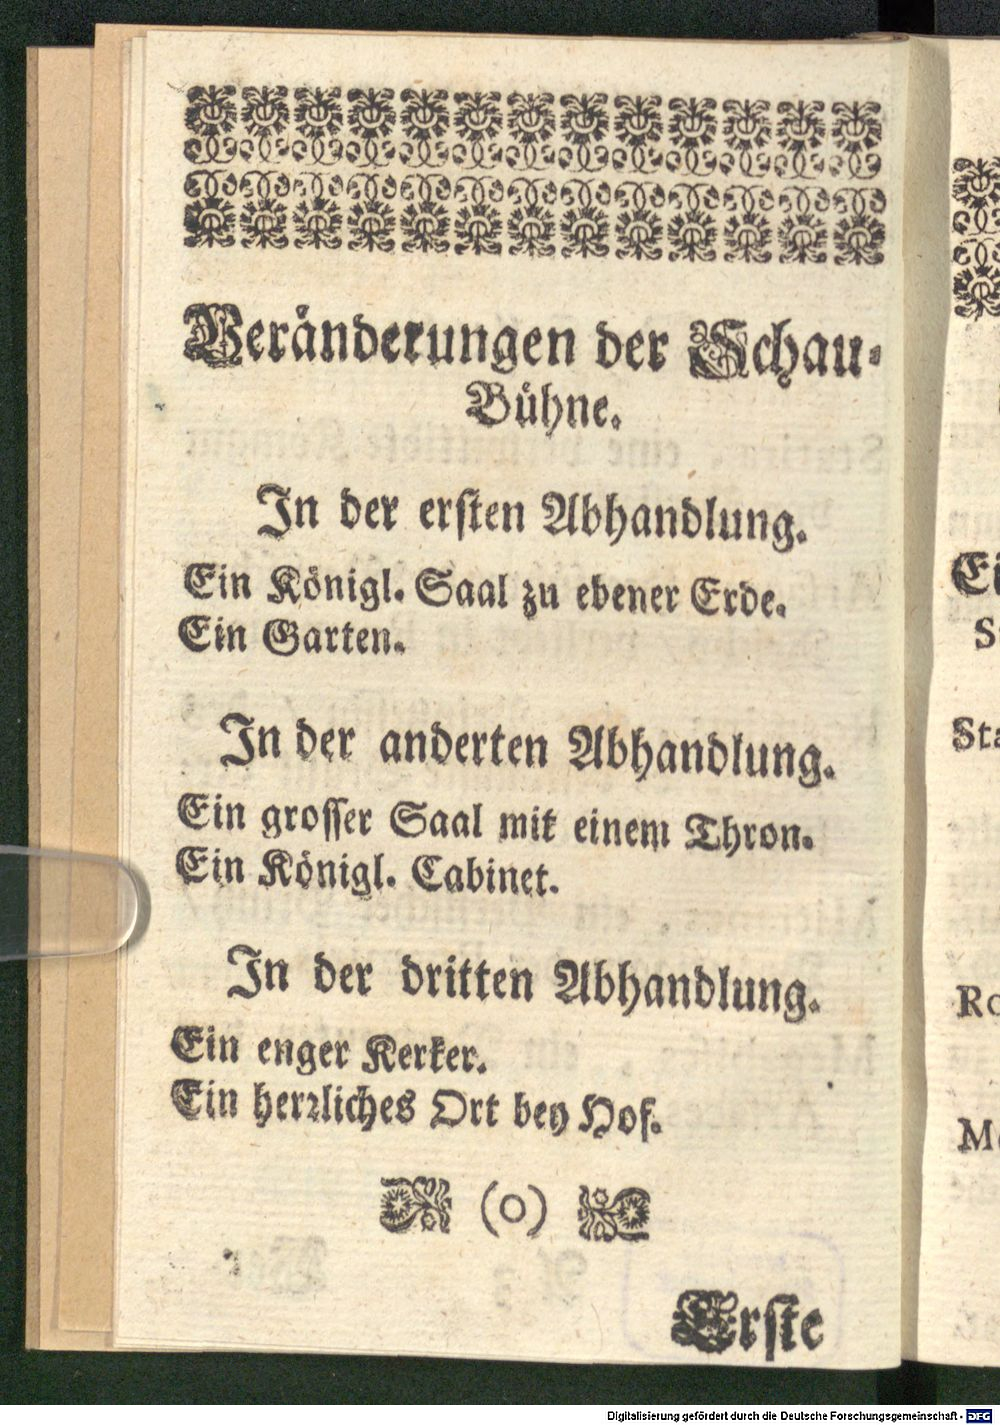 Veränderungen der Schau-
Bühne.
In der ersten Abhandlung.
Ein Königl. Saal zu ebener Erde.
Ein Garten.
In der anderten Abhandlung.
Ein grosser Saal mit einem Thron.
Ein Königl. Cabinet.
In der dritten Abhandlung.
Ein enger Kerker.
Ein herrliches Ort bey Hof.
(o)
Erste
Digitalisierung gefördert durch die Deutsche Forschungsgemeinschaft - DFG